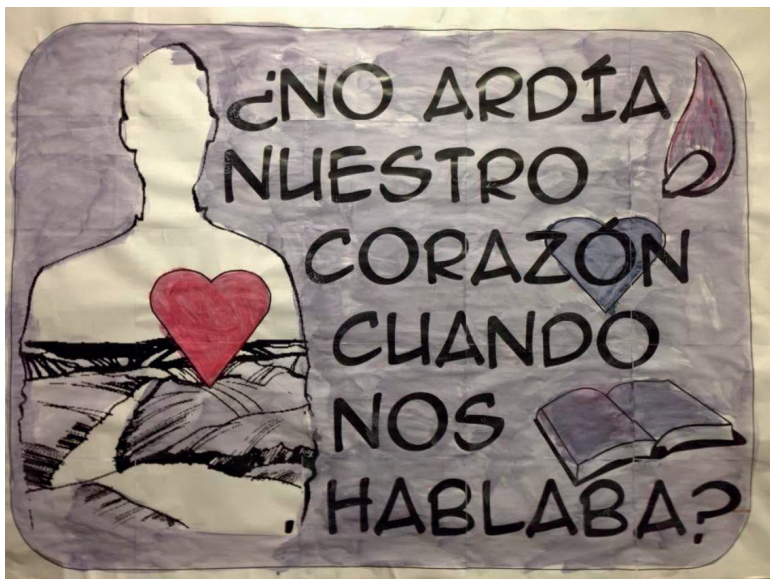 ¿NO ARDÍA
NUESTRO
CORAZÓN
CUANDO
NOS
HABLABA?